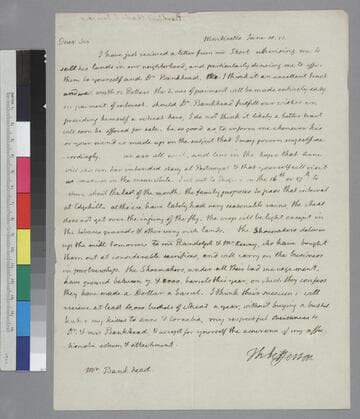 Monticello June 10. 11.
Dear Sir
I have just received a letter from mr Short advising me to
sell his lands in our neighborhood, and particularly desiring me to offer
them to yourself and Dr Bankhead. I think it an excellent tract
and well worth 10. Dollars. the times of payment will be made entirely easy
on paiment of interest. should Dr Bankhead fulfill our wishes in
providing himself a retreat here, I do not think it likely a better tract
will soon be offered for sale. be so good as to inform me whenever his
or your mind is made up on the subject that I may govern myself ac-
-cordingly. we are all well, and live in the hope that Anne
will
in the meanwhile. but not to begin in the 16th or 17th to
about the last of the month. the family proposes to pass that interval
at Edgehill. altho we have lately had very seasonable rains, the wheat
does not get over the injury of the fly. the crop will be light except in
the tobacco grounds & other very rich lands. the Shoemakers deliver
up the mill tomorrow to mr Randolph & Mr McKenny, who have bought
them out at considerable sacrifice, and will carry on the business
in partnership. the Shoemakers, under all their bad management,
have ground between 7. & 8000. barrels this year, on which they confess
they have made a Dollar a barrel. I think their successors will
receive at least 60,000 bushels of wheat a year, without buying a bushel
my kisses to Anne & Cornelia, my respectful obeisances to
Dr & mrs Bankhead, & accept for yourself the assurance of my affec-
tionate esteem & attachment.
Th: Jefferson
Mr Bankhead